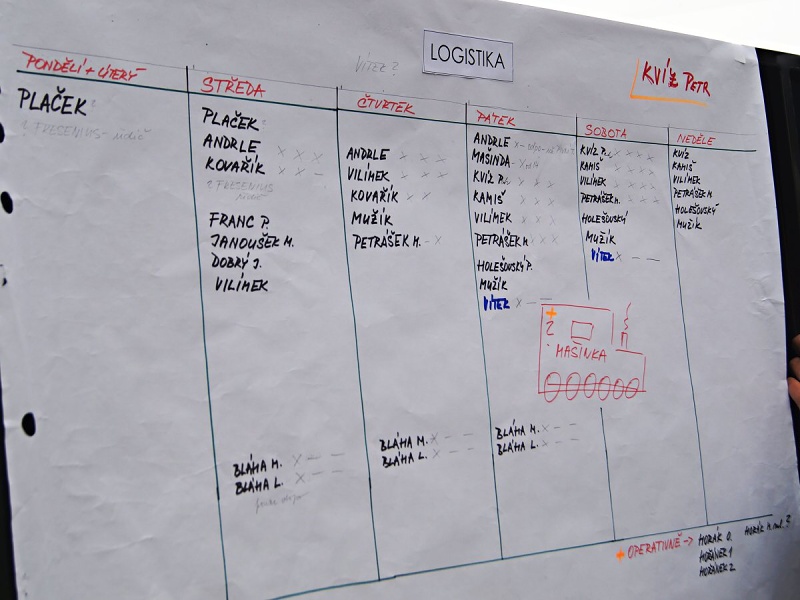 LOGISTIKA
VÍTEK ?
KVÍZ PETR
PONDĚLÍ + ÚTERÝ
PLAČEK
? FRESENIUS - řidič
STŘEDA
PLAČEK
ANDRLE x x x
KOVAŘÍK x x –
? FRESENIUS
FRANC P.
JANOUŠEK M.
DOBRÝ J.
VILÍMEK
BLÁHA M. x – –
BLÁHA L. x – –
ČTVRTEK
ANDRLE x x x
VILÍMEK x x x
KOVAŘÍK x x
MUŽÍK
PETRÁŠEK M. - x
BLÁHA M. x – –
BLÁHA L. x – –
PÁTEK
ANDRLE x -
MAŠINDA
KVÍZ P.
KAMIŠ x x x
VILÍMEK x x x
PETRÁŠEK M. x x x
HOLEŠOVSKÝ P.
MUŽÍK
VÍTEK x – –
BLÁHA M. x – –
BLÁHA L. x – –
SOBOTA
KVÍZ P. x x x x
KAMIŠ x x x x
VILÍMEK x x x x
PETRÁŠEK M. x x x
HOLEŠOVSKÝ
MUŽÍK
VÍTEK x – –
NEDĚLE
KVÍZ
KAMIŠ
VILÍMEK
PETRÁŠEK M.
HOLEŠOVSKÝ
MUŽÍK
+
2
MAŠINKA
+ OPERATIVNĚ -> HORÁK O. HORÁK M. ml. ?
HOŘÁNEK 1
HOŘÁNEK 2